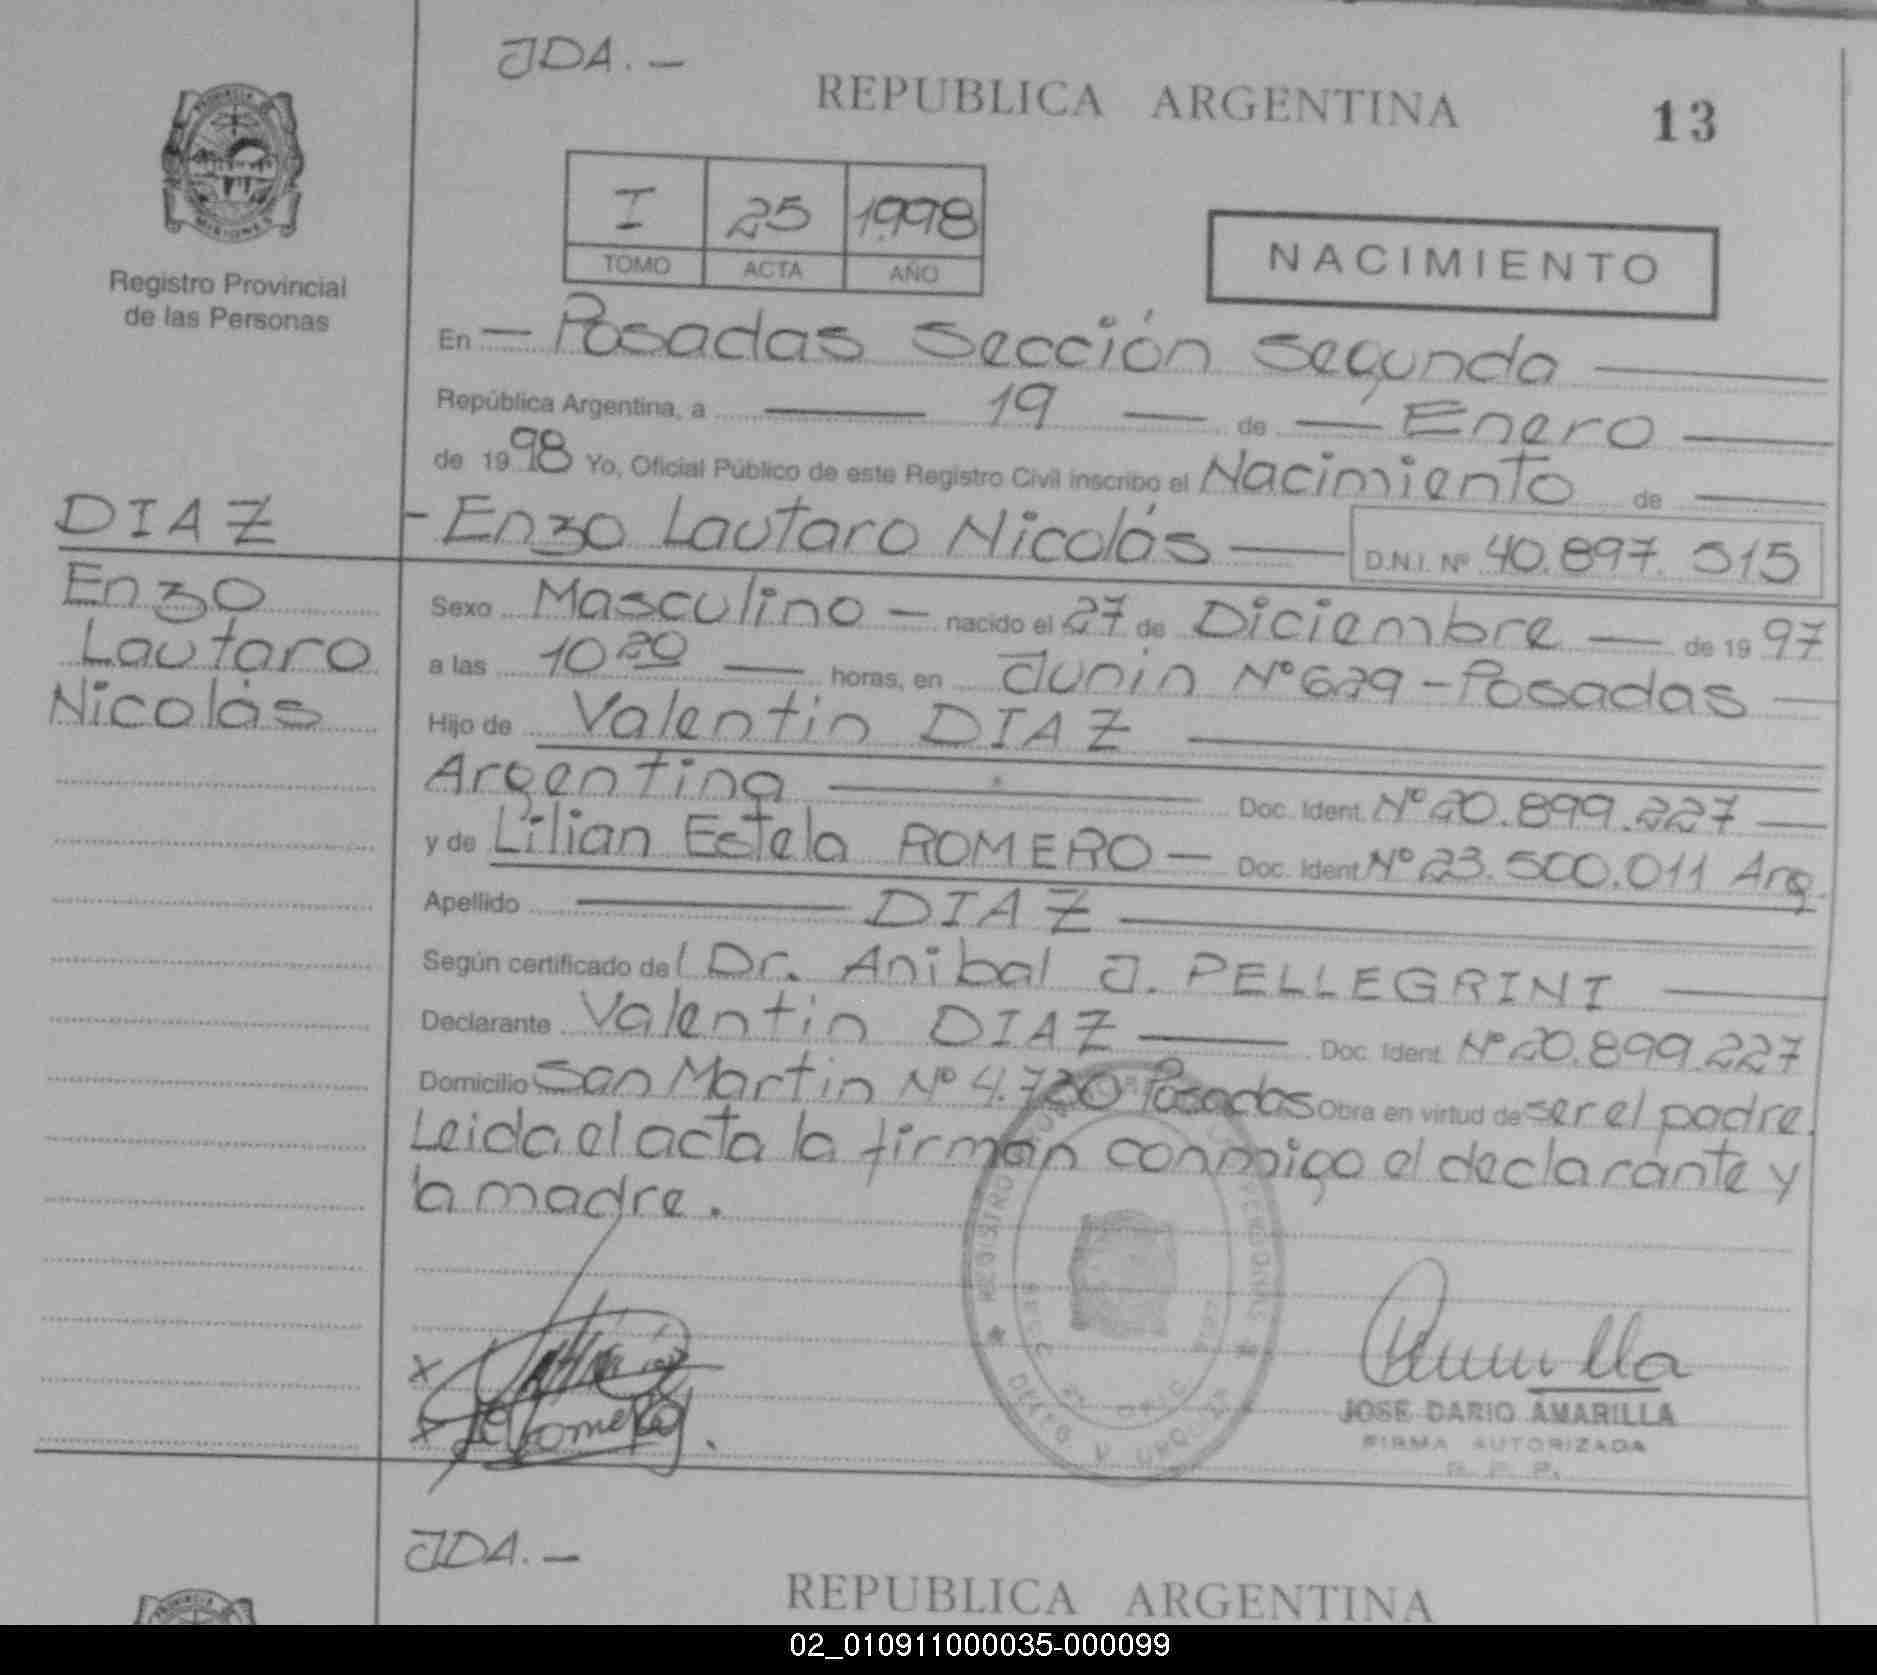 JDA.-
REPUBLICA ARGENTINA 13
I 25 1998
TOMO ACTA AÑO
NACIMIENTO
PROVINCIA DE
MISIONES
Registro Provincial
de las Personas
En — Posadas Sección Segunda —
República Argentina, a — 19 — de — Enero —
de 1998 Yo, Oficial Público de este Registro Civil inscribo el Nacimiento de —
DIAZ
- Enzo Lautaro Nicolás — D.N.I. Nº 40.897.515
Enzo
Lautaro
Nicolás
Sexo Masculino — nacido el 27 de Diciembre — de 1997
a las 10 20 — horas, en Junin Nº 629 - Posadas —
Hijo de Valentin DIAZ —
Argentina — Doc. Ident. Nº 20.899.227 —
y de Lilian Estela ROMERO — Doc. Ident. Nº 23.500.011 Arg.
Apellido — DIAZ —
Según certificado del Dr. Anibal J. PELLEGRINI —
Declarante Valentin DIAZ — Doc. Ident. Nº 20.899.227
Domicilio San Martin Nº 4.720 Posadas Obra en virtud de ser el padre.
Leida el acta la firman conmigo el declarante y
la madre.
JOSE DARIO AMARILLA
FIRMA AUTORIZADA
R. P. P.
JDA.-
REPUBLICA ARGENTINA
02_010911000035-000099